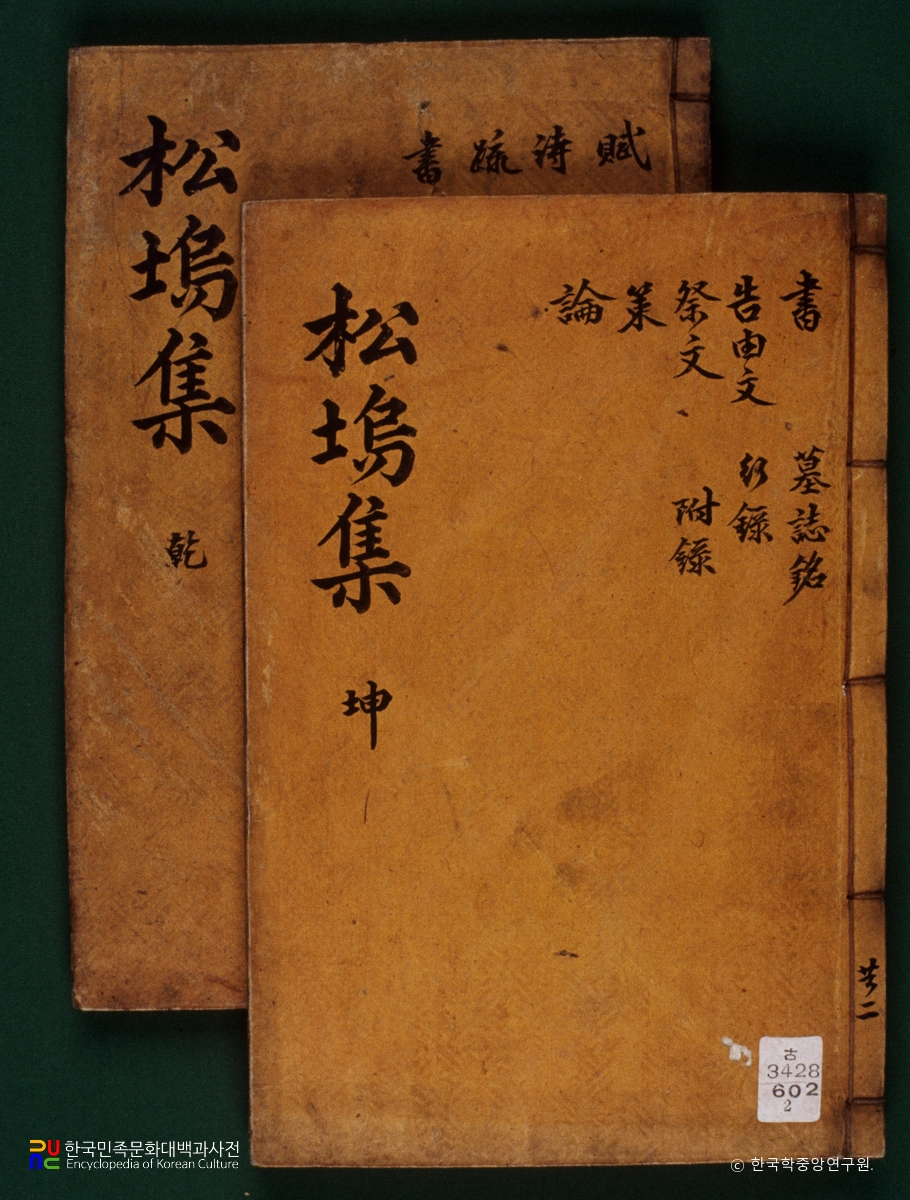 賦
詩
疏
書
松塢集 乾
書 墓誌銘
告由文 行錄
祭文 附錄
策
論
松塢集 坤
共二
古
3428
602
2
한국민족문화대백과사전
Encyclopedia of Korean Culture
ⓒ 한국학중앙연구원.